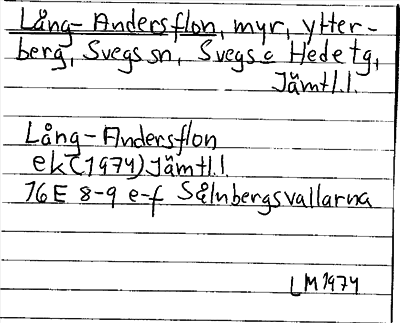 Lång-Andersflon, myr, Ytter-
berg, Svegs sn, Svegs o Hede tg,
Jämtl.l.
Lång-Andersflon
ek (1974) Jämtl.l
16E 8-9 e-f Sålnbergsvallarna
LM 1974